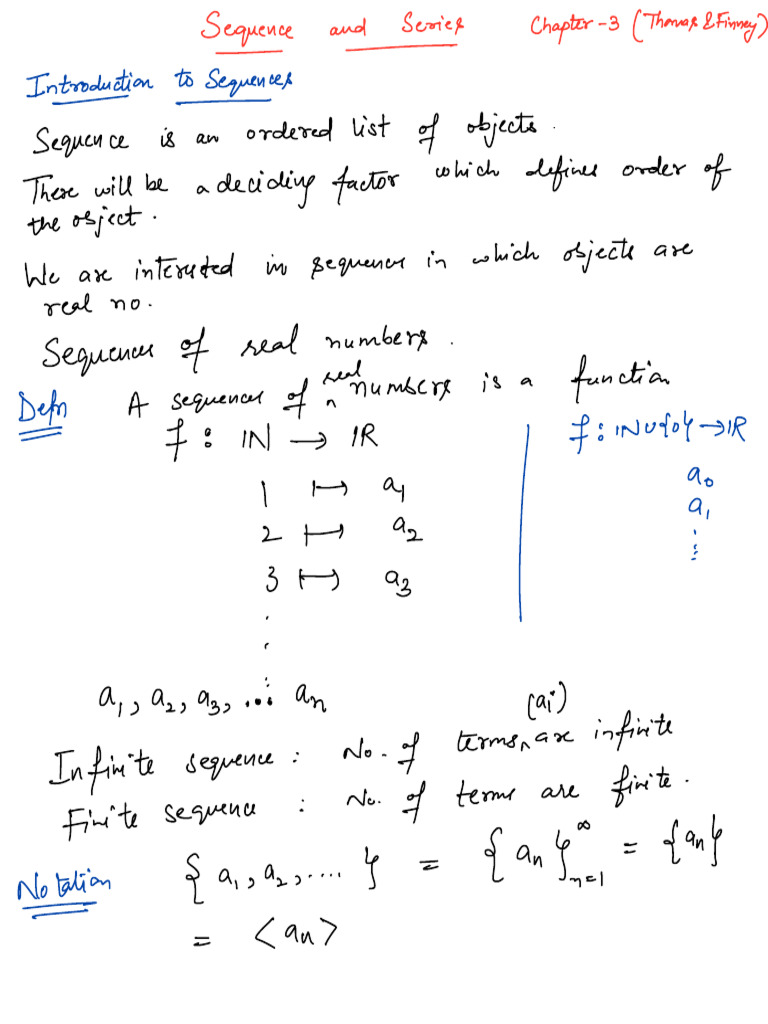 Sequence and Series Chapter-3 (Thomas & Finney)
Introduction to Sequences
Sequence is an ordered list of objects.
There will be a deciding factor which defines order of
the object.
We are interested in sequence in which objects are
real no.
Sequence of real numbers.
Defn A sequence of real numbers is a function
f : ℕ → ℝ f : ℕ∪{0} → ℝ
1 ↦ a₁ a₀
2 ↦ a₂ a₁
3 ↦ a₃ ⋮
⋮
a₁, a₂, a₃, ... aₙ
Infinite sequence : No. of terms (aᵢ) are infinite
Finite sequence : No. of terms are finite.
Notation { a₁, a₂, .... } = { aₙ }ₙ₌₁^∞ = {aₙ}
= <aₙ>